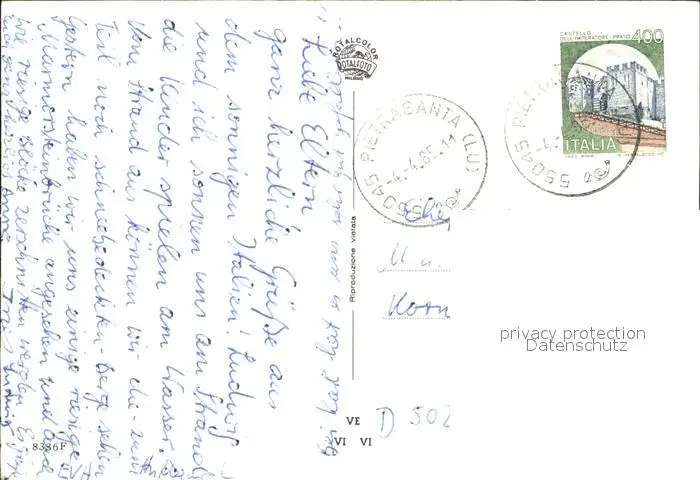 Liebe Eltern
ganz herzliche Grüße aus
dem sonnigen Italien! Ludwig
und ich sonnen uns am Strand
die Kinder spielen am Wasser.
Vom Strand aus können wir die zum
Teil noch schneebedeckten Berge sehen
Gestern haben wir uns einige riesige
Marmorsteinbrüche angesehen und auch
wie riesige Blöcke zerschnitten werden. Es
ROTALCOLOR
ROTALFOTO
MILANO
Riproduzione vietata
8386F
VE
VI VI
55045 PIETRASANTA (LU)
-4.-4.85.11
55045 PIETRA
-4.
CASTELLO
DELL'IMPERATORE·PRATO
400
ITALIA
Ehe
M u.
Korn
D 502
privacy protection
Datenschutz